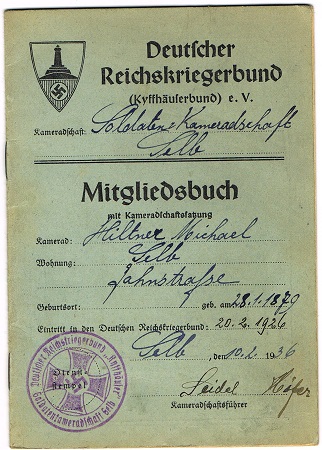 Deutscher
Reichskriegerbund
(Kyffhäuserbund) e. V.
Kameradschaft: Soldaten-Kameradschaft
Selb
Mitgliedsbuch
mit Kameradschaftssatzung
Kamerad: Hiltner Michael
Wohnung: Selb
Jahnstraße
Geburtsort: geb. am 28.1.1879
Eintritt in den Deutschen Reichskriegerbund: 20.2.1926
Selb, den 10.2.1936
Seidel
Kameradschaftsführer
Deutscher Reichskriegerbund "Kyffhäuser"
Dienst-
stempel
Soldatenkameradschaft Selb